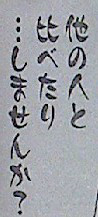 他の人と
比べたり
…しませんか？